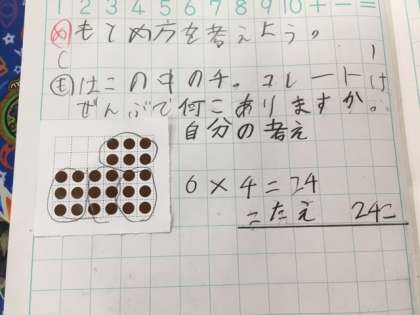 1 2 3 4 5 6 7 8 9 10 + - =
め もとめ方を考えよう。
も はこの中のチョコレートは
ぜんぶで何こありますか。
自分の考え
6×4=24
こたえ 24こ